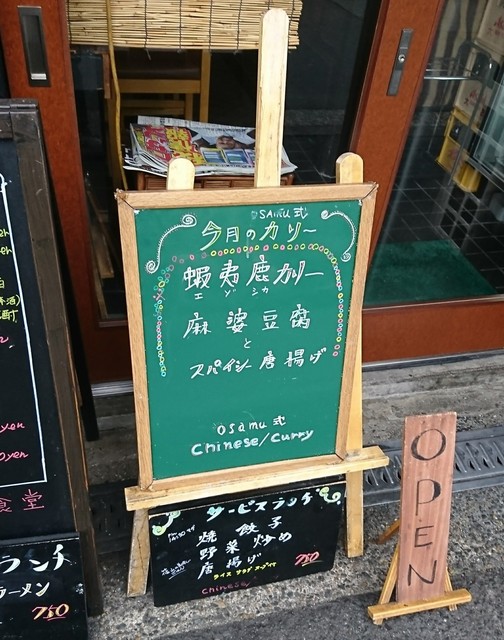 SAMU 式
今月のカリー
蝦夷鹿カリー
エゾシカ
麻婆豆腐
と
スパイシー唐揚げ
osamu 式
Chinese/Curry
サービスランチ
焼餃子
野菜炒め
唐揚げ
750
ライス サラダ スープ付
Chinese
OPEN
yen
0yen
食堂
ランチ
ラーメン
750